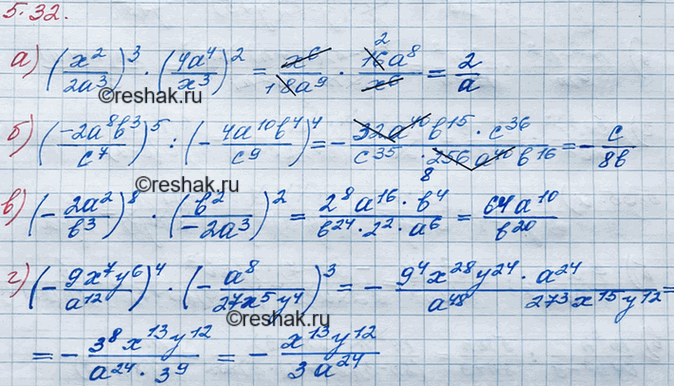 5.32.
а) (x²/2a³)³ · (4a⁴/x³)² = x⁶/₁8a⁹ · ²16a⁸/x⁶ = 2/a
©reshak.ru
б) (-2a⁸b³/c⁷)⁵ : (-4a¹⁰b⁴/c⁹)⁴ = -32a⁴⁰b¹⁵ · c³⁶/c³⁵ · ₈256a⁴⁰b¹⁶ = -c/8b
©reshak.ru
в) (-2a²/b³)⁸ · (b²/-2a³)² = 2⁸a¹⁶ · b⁴/b²⁴ · 2² · a⁶ = 64a¹⁰/b²⁰
г) (-9x⁷y⁶/a¹²)⁴ · (-a⁸/27x⁵y⁴)³ = -9⁴x²⁸y²⁴ · a²⁴/a⁴⁸ 27³x¹⁵y¹² =
©reshak.ru
= -3⁸x¹³y¹²/a²⁴ · 3⁹ = -x¹³y¹²/3a²⁴